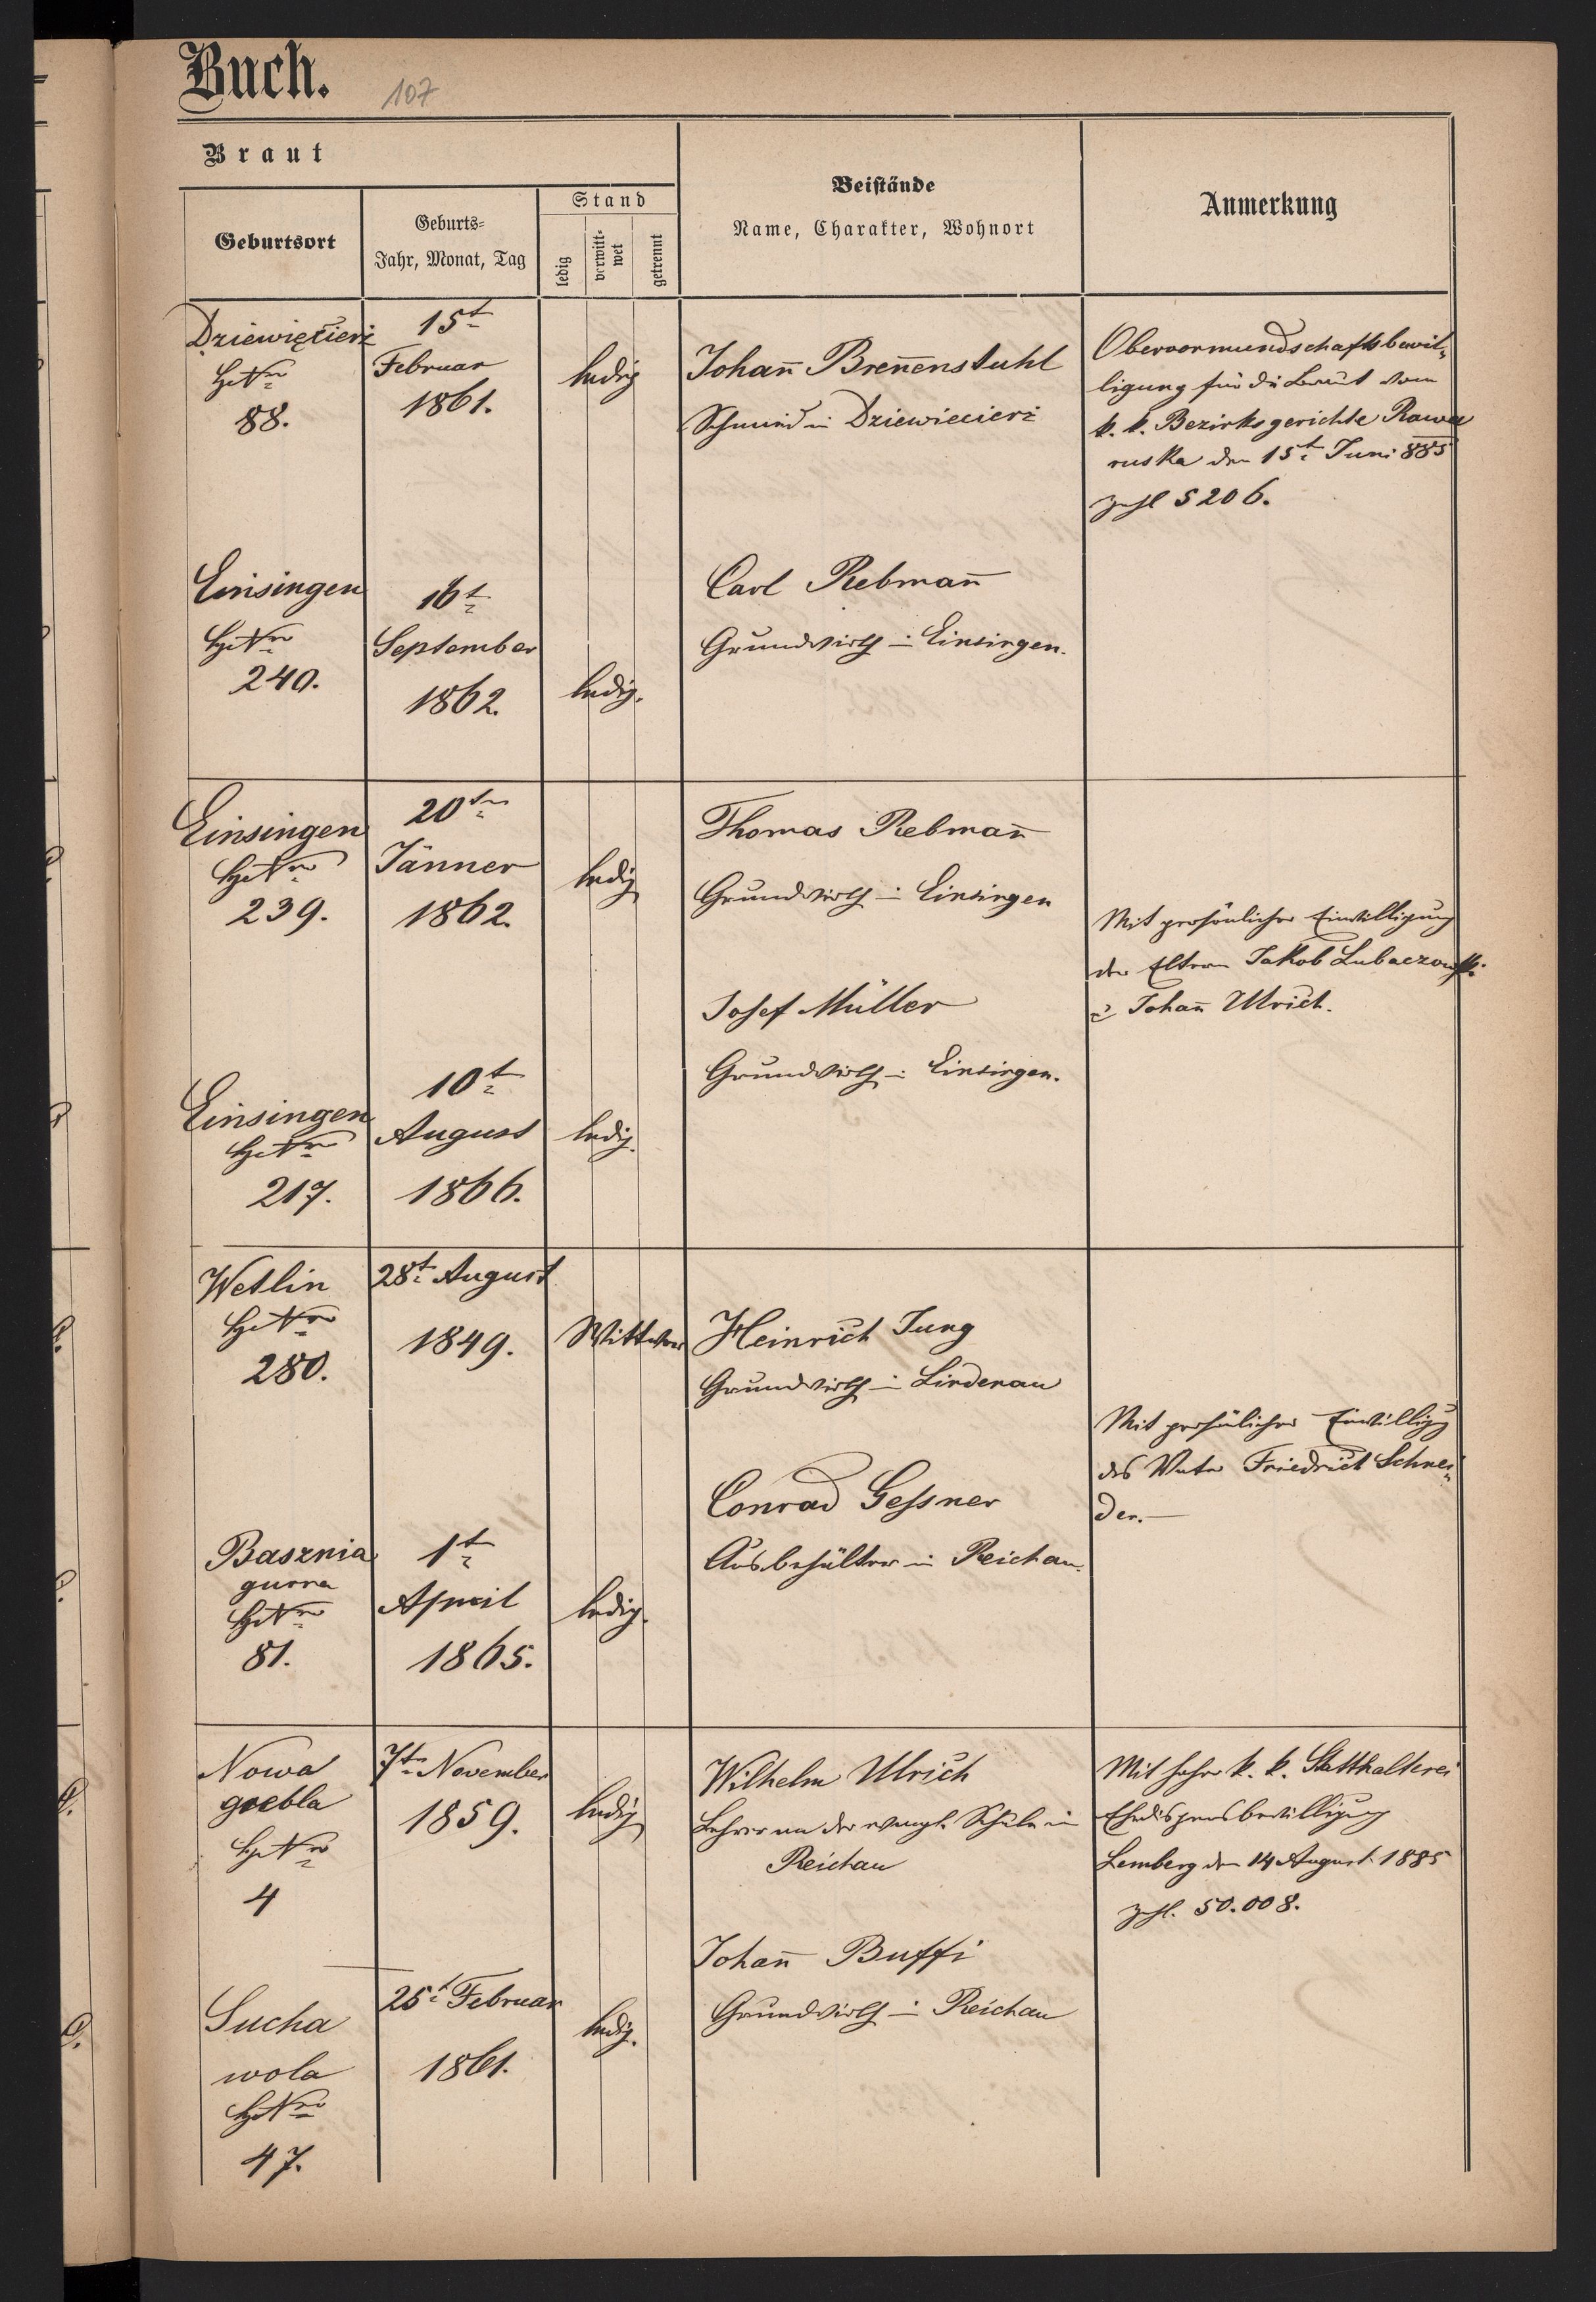 Buch.
107
Braut
Geburtsort
Geburts-
Jahr, Monat, Tag
Stand
ledig
verwitt-
wet
getrennt
Beistände
Name, Charakter, Wohnort
Anmerkung
Dziewięcierz
HsNro
88.
15t
Februar
1861.
ledig
Johan̄ Bren̄enstuhl
Schmied in Dziewiecierz
Obervormundschaftsbewil-
ligung für die Braut vom
k. k. Bezirksgerichte Rawa
ruska den 15t Juni 885
Zahl 5206.
Einsingen
HsNro
240.
16t
September
1862.
ledig.
Carl Rebman̄
Grundwirth in Einsingen.
Einsingen
HsNro
239.
20ten
Jänner
1862.
ledig
Thomas Rebman̄
Grundwirth in Einsingen
Mit persönlicher Einwilligung
der Eltern Jakob Lubaczowski
u Johan̄ Ulrich.
Josef Müller
Grundwirth in Einsingen.
Einsingen
HsNro
217.
10t
August
1866.
ledig.
Wetlin
HsNro
280.
28t August
1849.
Wittwe
Heinrich Jung
Grundwirth in Lindenau
Mit persönlicher Einwilligg
des Vaters Friedrich Schnei-
der.
Conrad Gessner
Ausbehälter in Reichau.
Basznia
gurna
HsNro
81.
1t
April
1865.
ledig.
Nowa
grebla
HsNro
4
7ten November
1859.
ledig
Wilhelm Ulrich
Lehrer an der evangl. Schule in
Reichau
Mit hoher k. k. Statthalterei
Ehedispensbewilligung
Lemberg den 14 August 1885
Zahl. 50.008.
Johan̄ Buffi
Grundwirth in Reichau
Sucha
wola
HsNro
47.
25t Februar
1861.
ledig.